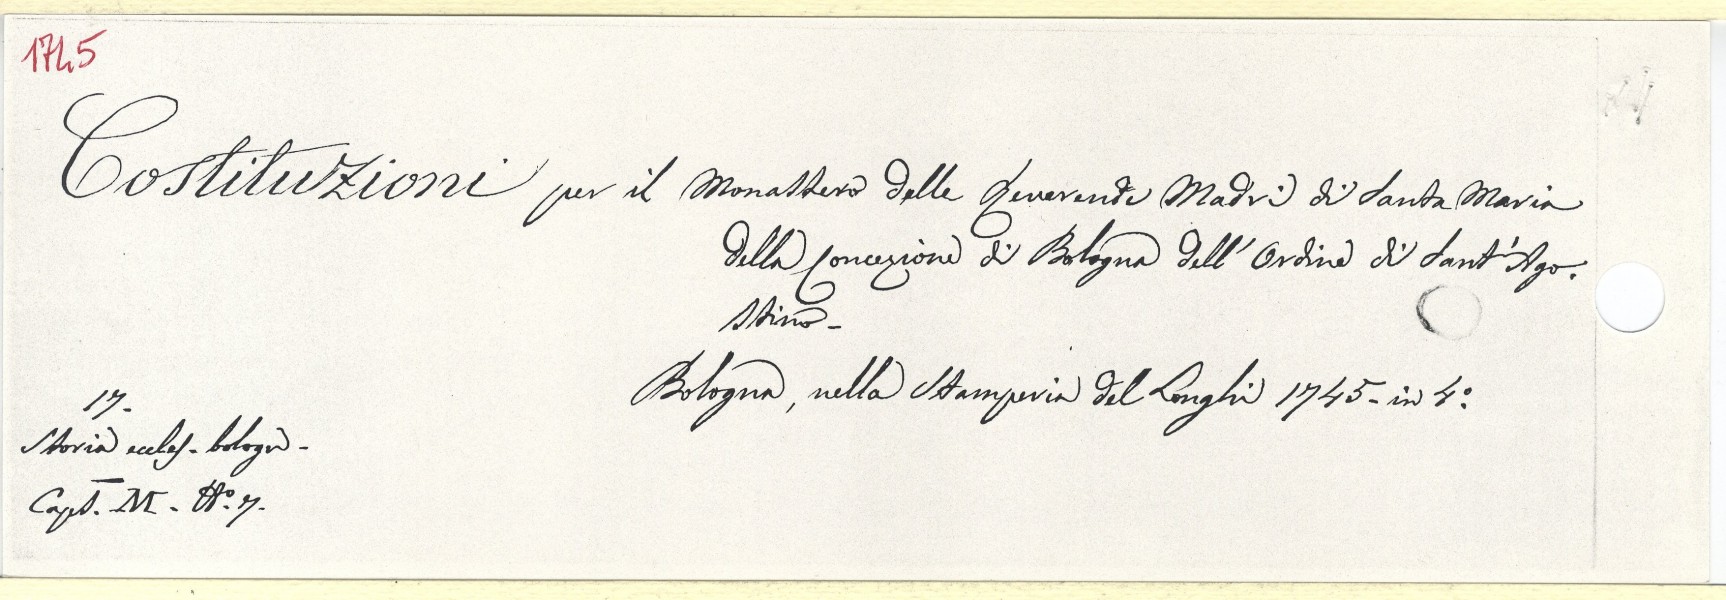 1745
Costituzioni per il Monastero delle Reverende Madri di Santa Maria
della Concezione di Bologna dell' Ordine di Sant' Ago-
stino -
Bologna, nella Stamperia del Longhi 1745 - in 4.º
17.
Storia eccles. bologn -
Caps. M - Nº. 7.